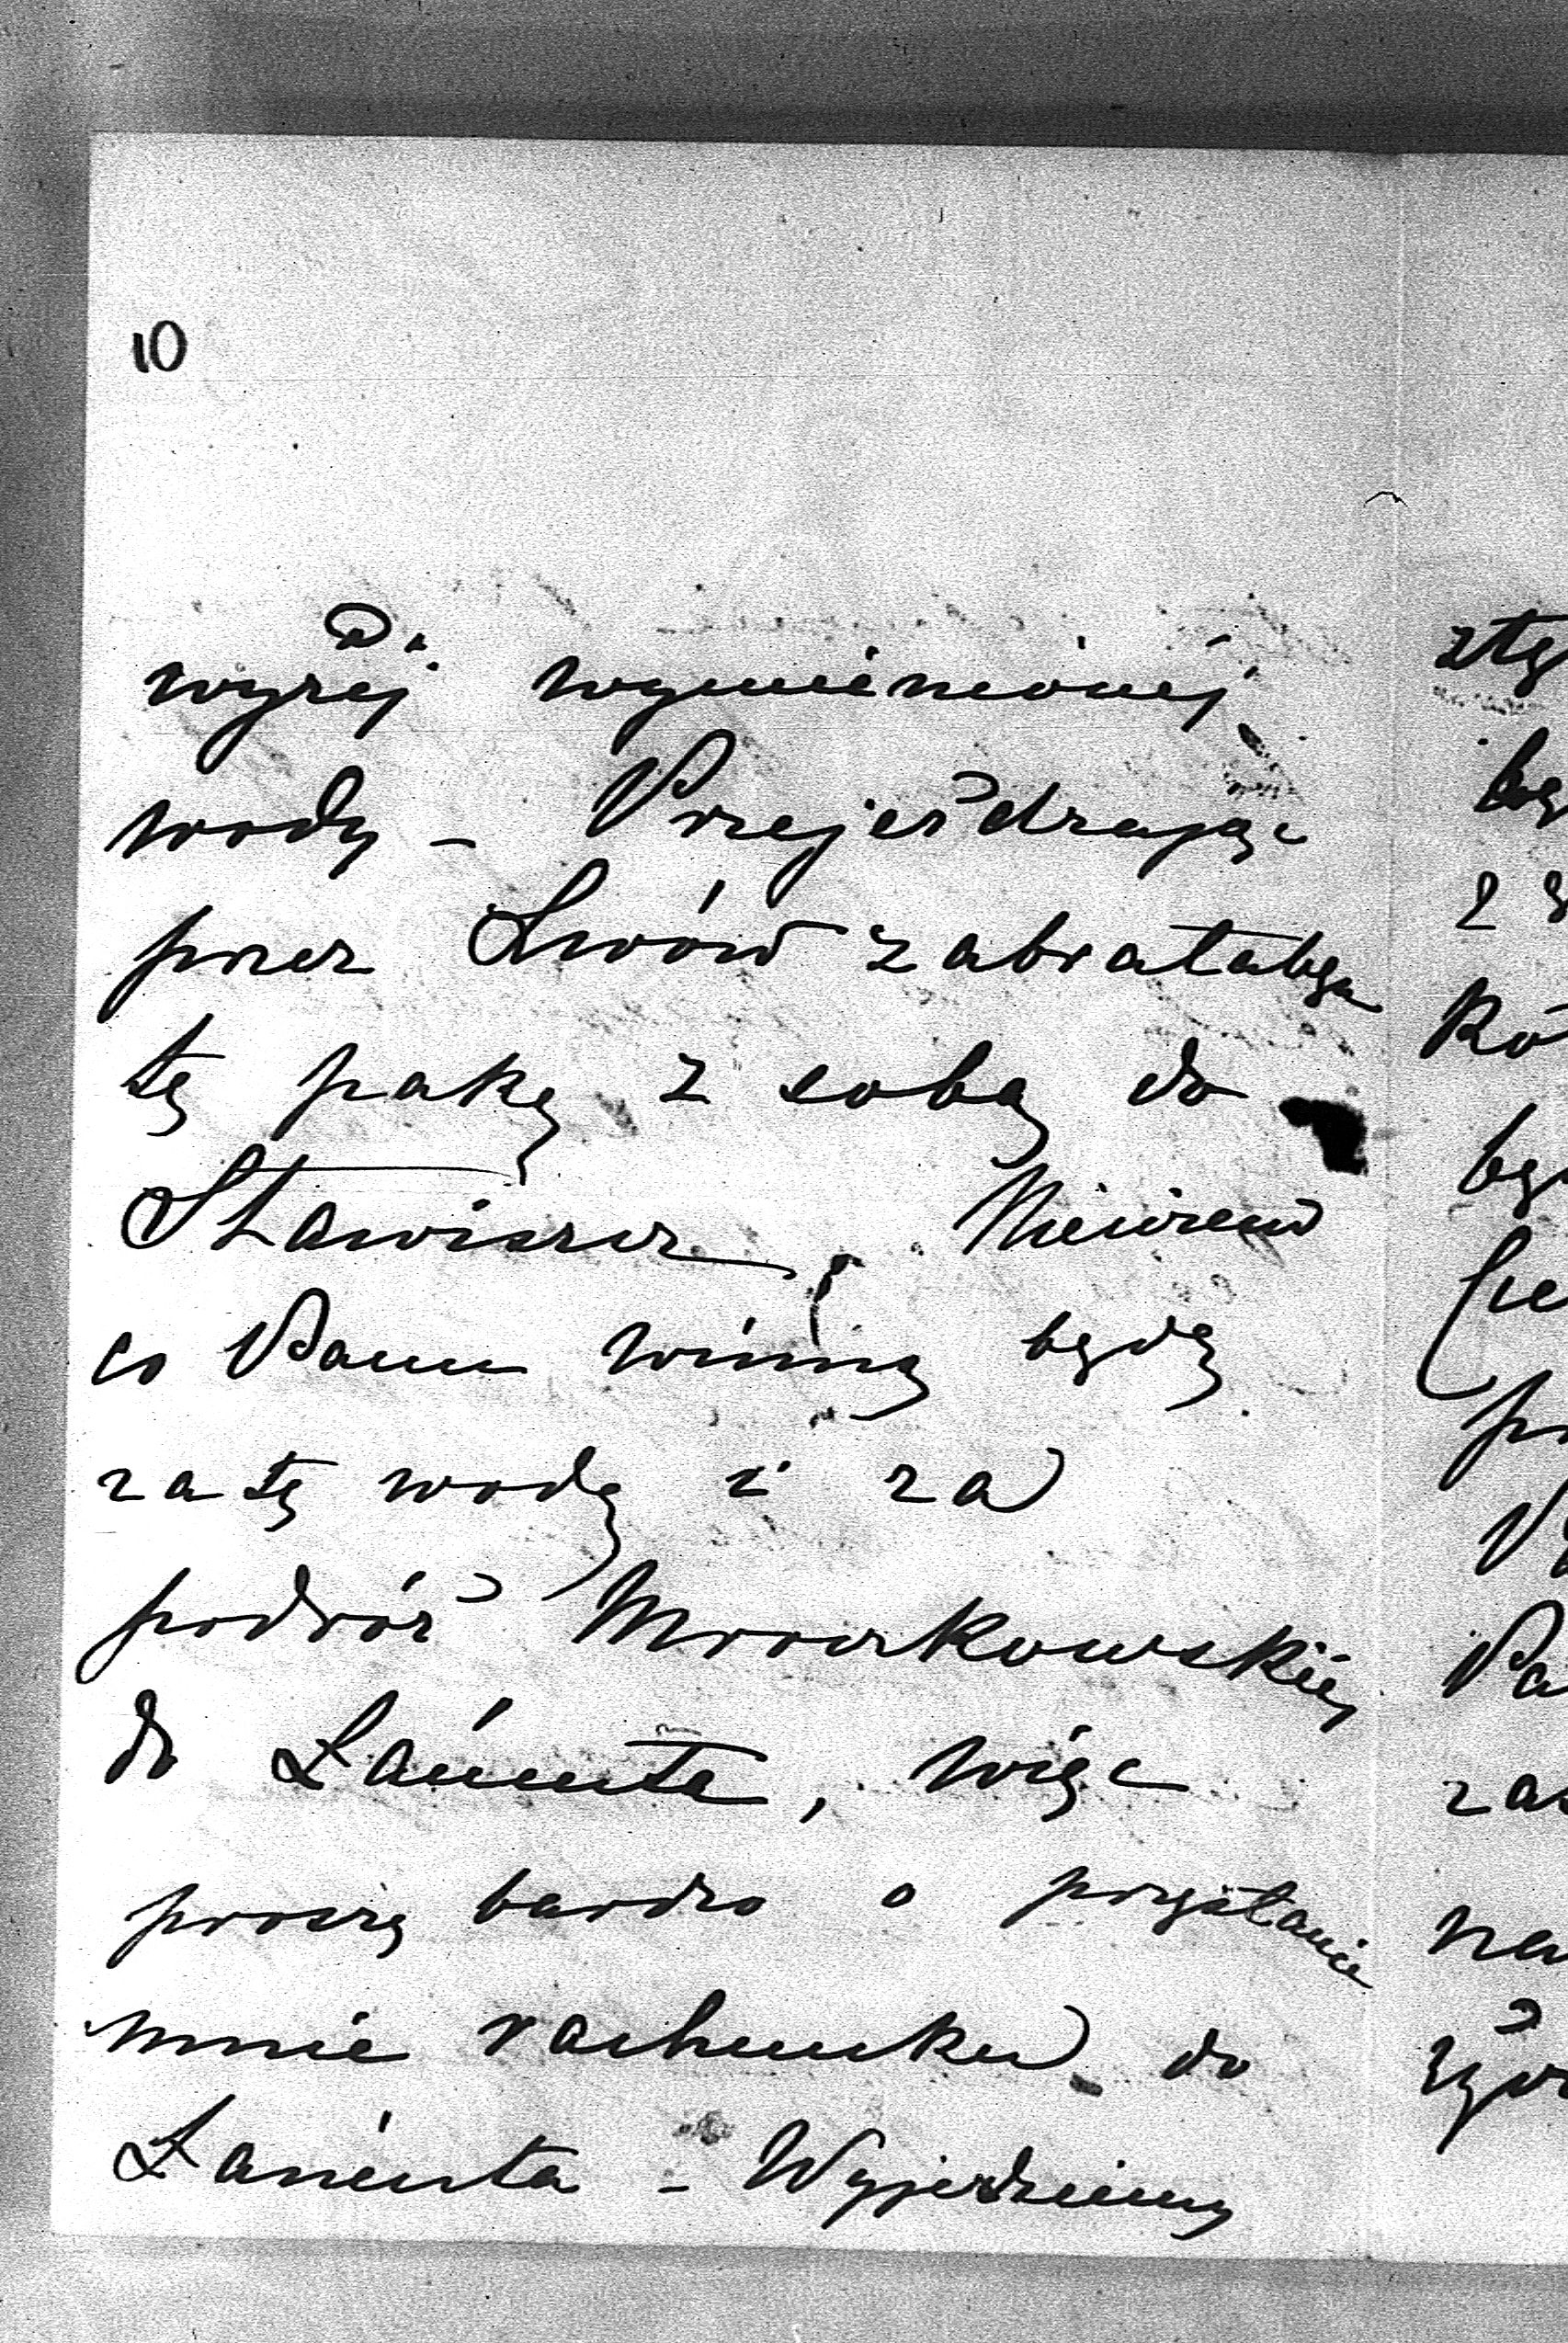 10
wyżej wymienionej
wody – Przejeżdżając
przez Lwów zabrałabym
tę pakę z sobą do
Stawiszcz. Niewiem
co Panu winną będę
za tę wodę i za
podróż Mroczkowskiéj
do Łańcuta, więc
proszę bardzo o przysłanie
mnie rachunku do
Łańcuta – Wyjeżdżiemy